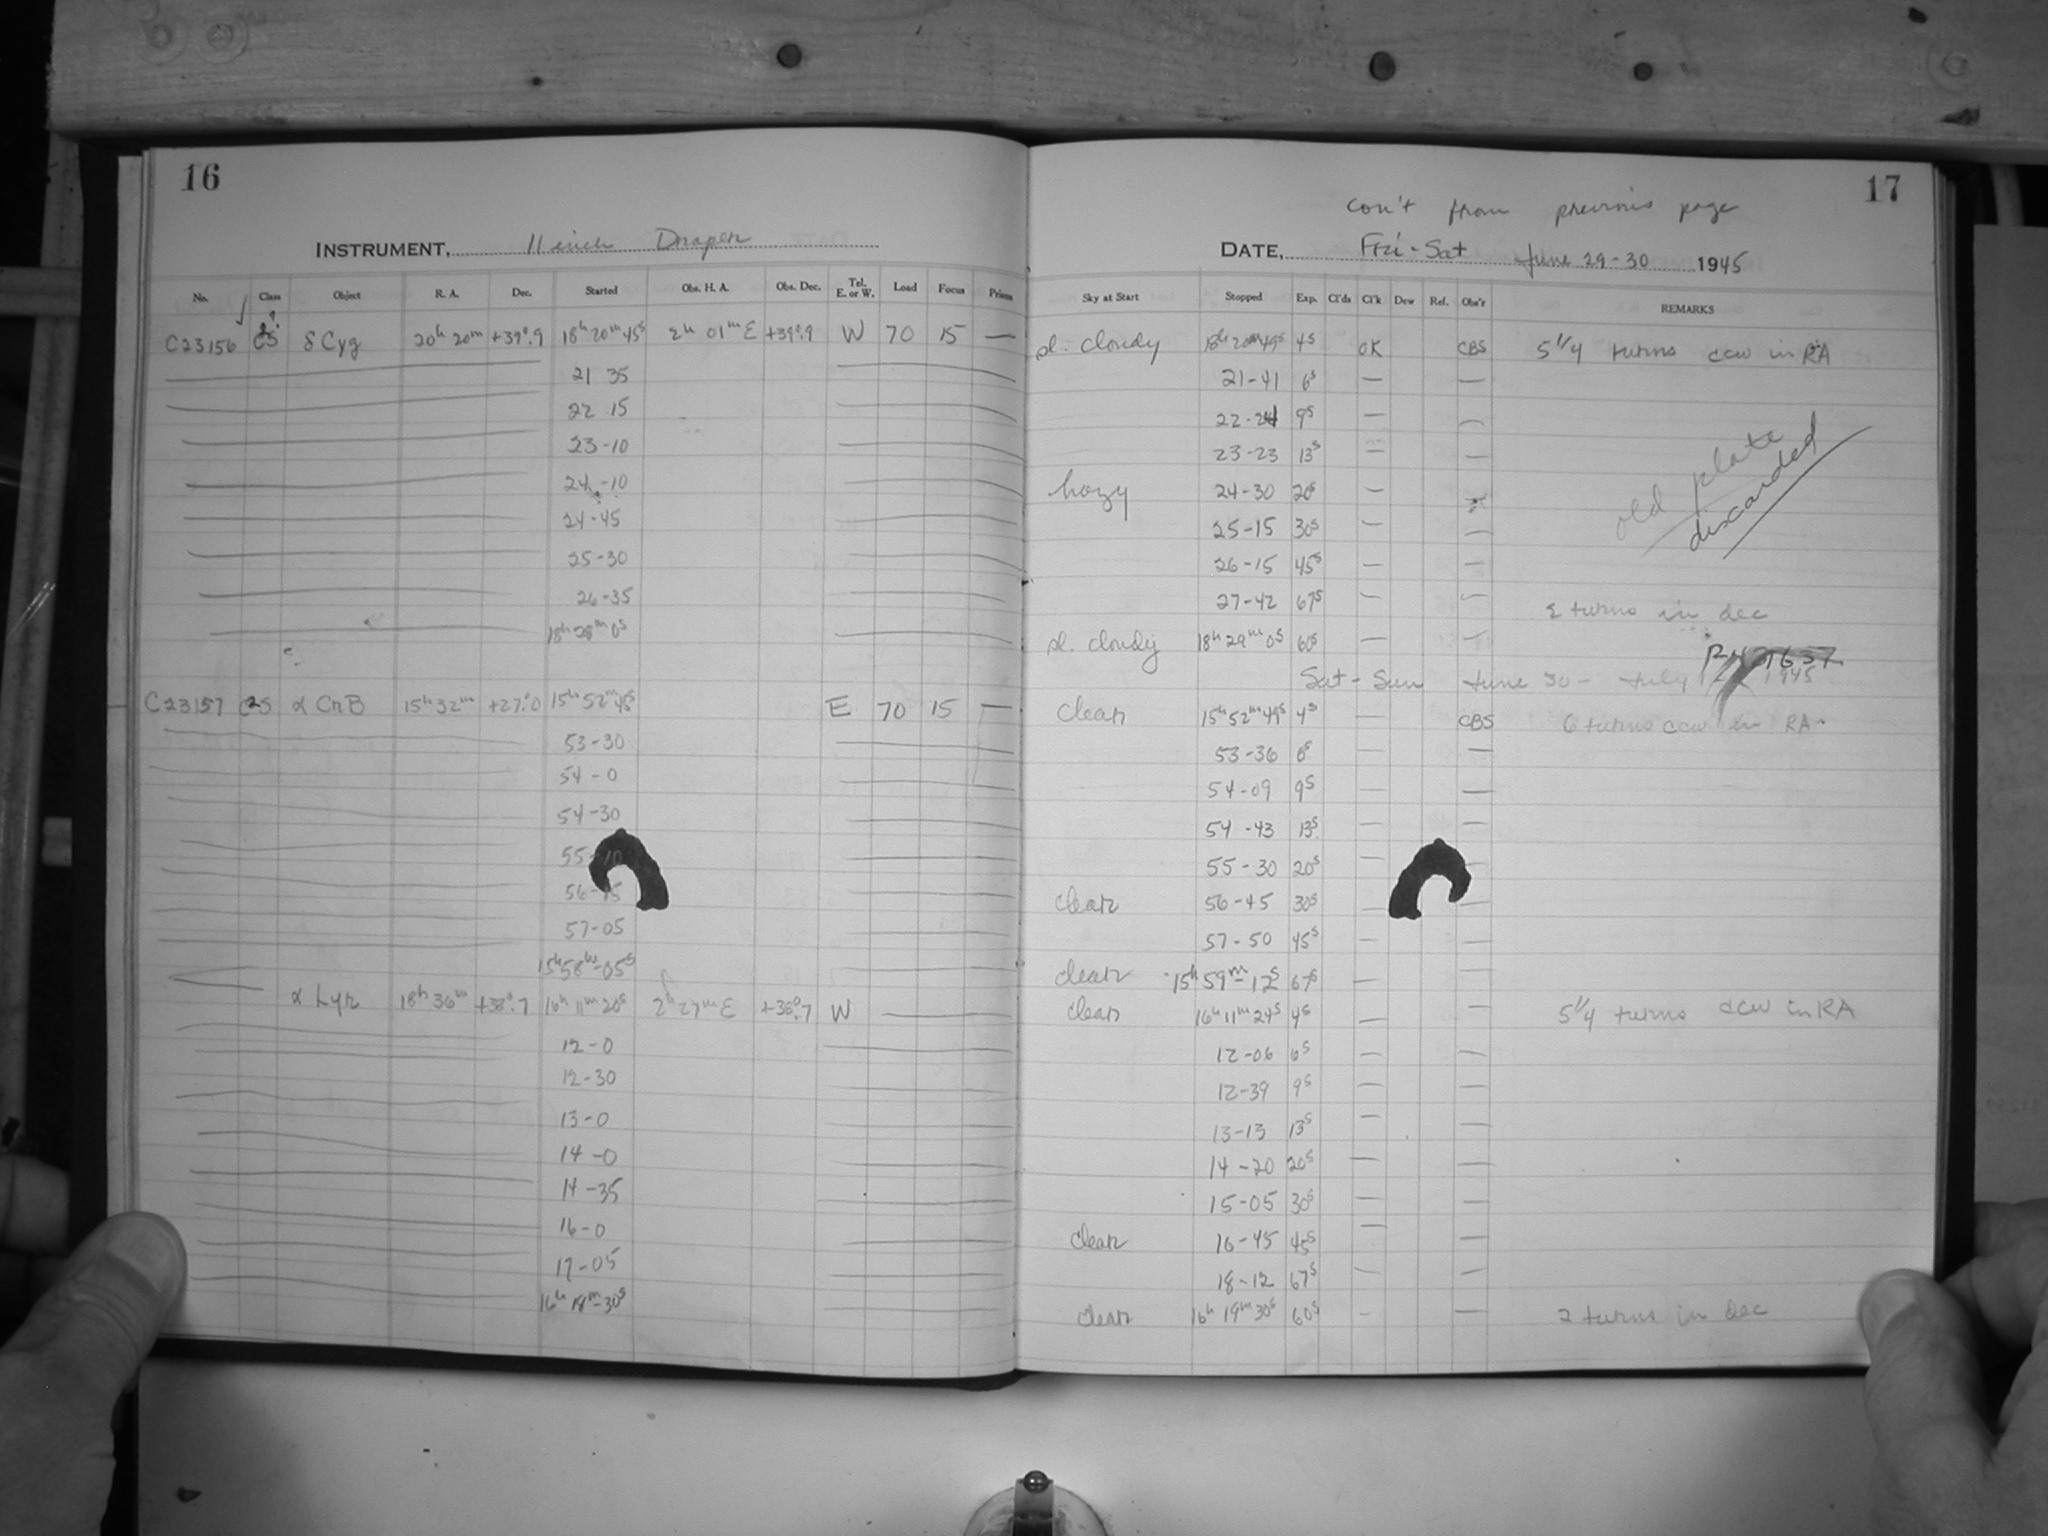 16
INSTRUMENT, 11 inch Draper
No. Class Object R. A. Dec. Started Obs. H. A. Obs. Dec. Tel. E. or W. Load Focus Prisms
C23156 δ Cyg 20h 20m +39°.9 18h 20m 45s 2h 01m E +39°.9 W 70 15 —
21 35
22 15
23-10
24-10
24-45
25-30
26-35
18h 28m 0s
C23157 α CrB 15h 32m +27°.0 15h 52m 45s E 70 15 —
53-30
54-0
54-30
55-10
56-15
57-05
15h 58m-05s
α Lyr 18h 36m +38°.7 16h 11m 20s 2h 27m E +38°.7 W
12-0
12-30
13-0
14-0
14-35
16-0
17-05
16h 18m-30s
17
con't from previous page
DATE, Fri-Sat June 29-30 1945
Sky at Start Stopped Exp. Cl'ds Cl'k Dew Ref. Obs'r REMARKS
sl. cloudy 18h 20m 49s 4s OK CBS 5 1/4 turns ccw in RA
21-41 6s — —
22-24 9s — —
23-23 13s — —
hazy 24-30 20s —
25-15 30s — —
26-15 45s — —
27-42 67s — —
old plate
discarded
2 turns in dec
sl. cloudy 18h 29m 0s 60s — —
Sat-Sun June 30- July 1945
clear 15h 52m 49s 4s — CBS 6 turns ccw in RA
53-36 6s — —
54-09 9s — —
54-43 13s — —
55-30 20s — —
clear 56-45 30s — —
57-50 45s — —
clear 15h 59m-12s 67s —
clear 16h 11m 24s 4s — — 5 1/4 turns ccw in RA
12-06 6s — —
12-39 9s — —
13-13 13s — —
14-20 20s — —
15-05 30s — —
clear 16-45 45s — —
18-12 67s — —
clear 16h 19m 30s 60s - — 2 turns in dec